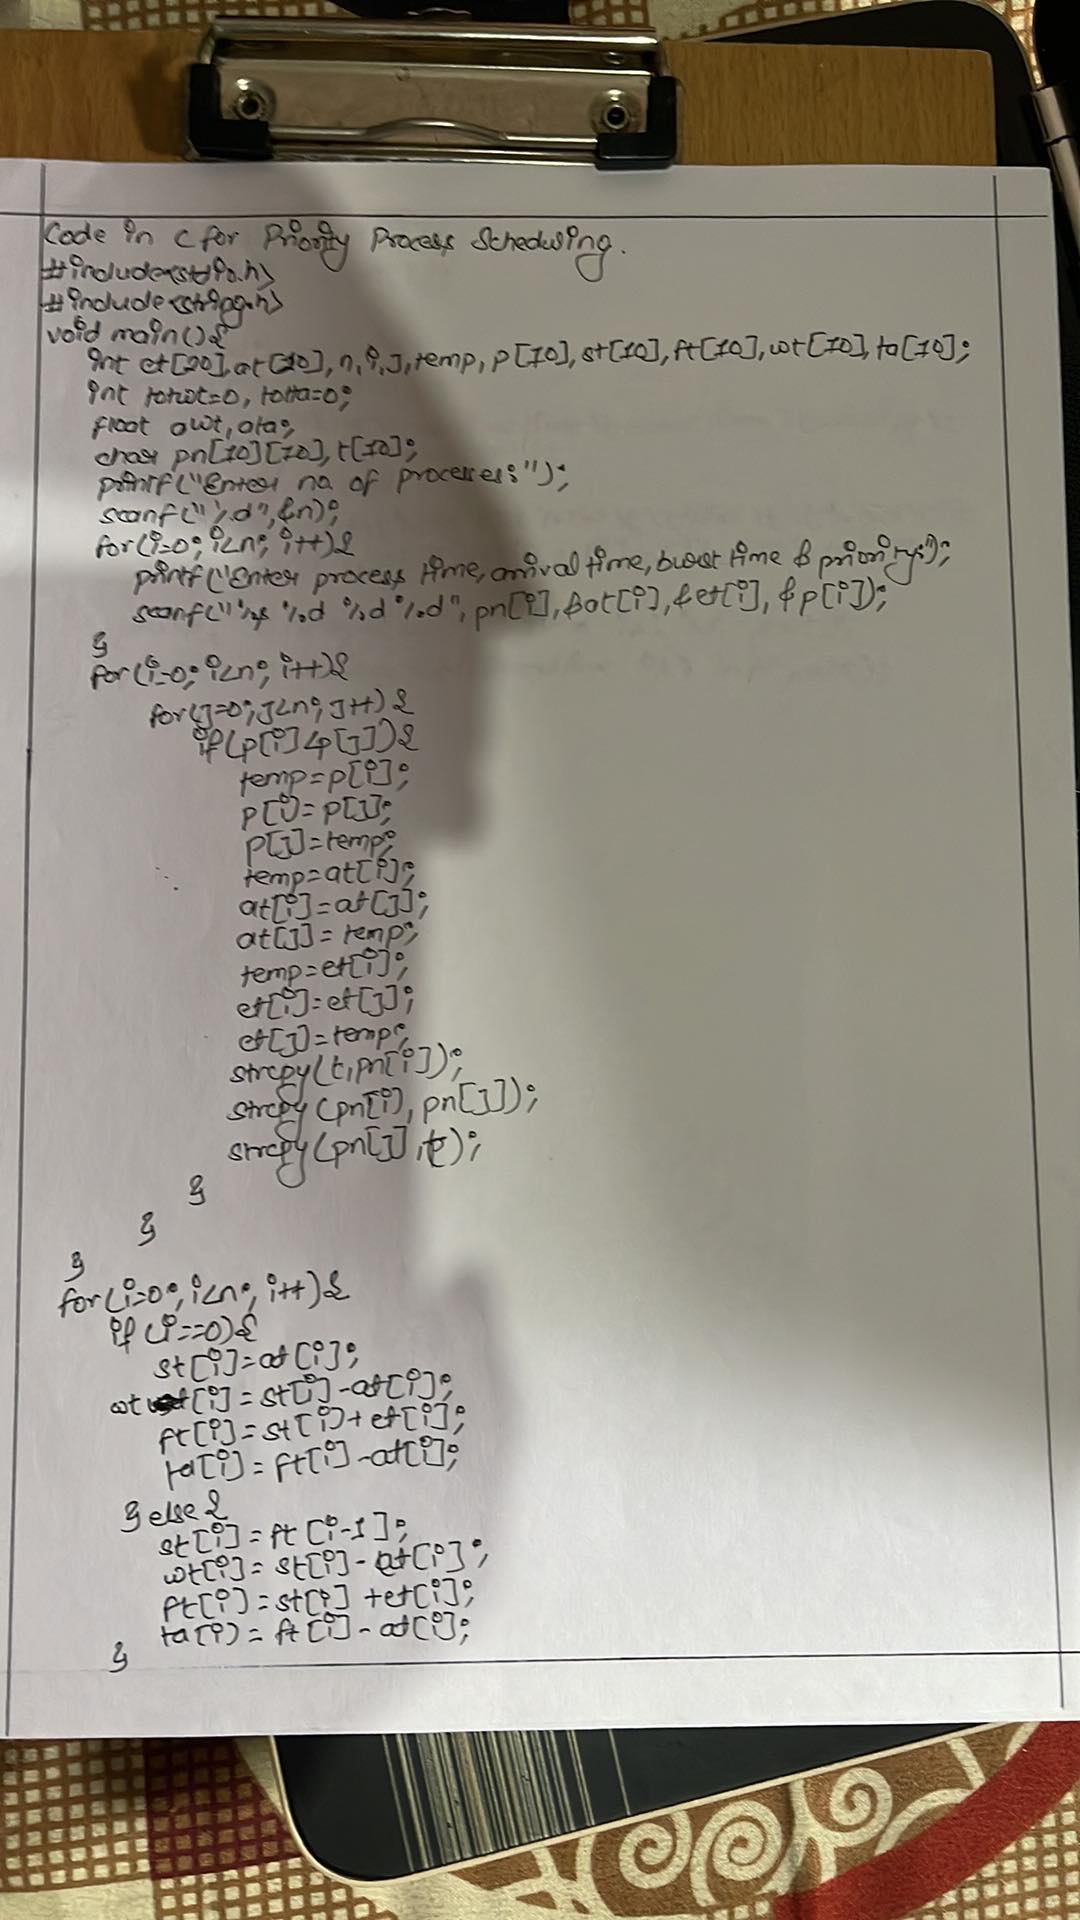 Code in C for Priority Process Scheduling.
#include<stdio.h>
#include<string.h>
void main(){
int et[20],at[10],n,i,j,temp,p[10],st[10],ft[10],wt[10],ta[10];
int totwt=0, totta=0;
float awt,ata;
char pn[10][10],t[10];
printf("Enter no. of processes:");
scanf("%d",&n);
for(i=0; i<n; i++){
printf("Enter process time, arrival time, burst time & priority:");
scanf("%s %d %d %d", pn[i], &at[i], &et[i], &p[i]);
}
for(i=0; i<n; i++){
for(j=0; j<n; j++){
if(p[i]<p[j]){
temp=p[i];
p[i]=p[j];
p[j]=temp;
temp=at[i];
at[i]=at[j];
at[j]=temp;
temp=et[i];
et[i]=et[j];
et[j]=temp;
strcpy(t,pn[i]);
strcpy(pn[i],pn[j]);
strcpy(pn[j],t);
}
}
}
for(i=0; i<n; i++){
if(i==0){
st[i]=at[i];
wt[i]=st[i]-at[i];
ft[i]=st[i]+et[i];
ta[i]=ft[i]-at[i];
}else{
st[i]=ft[i-1];
wt[i]=st[i]-at[i];
ft[i]=st[i]+et[i];
ta[i]=ft[i]-at[i];
}